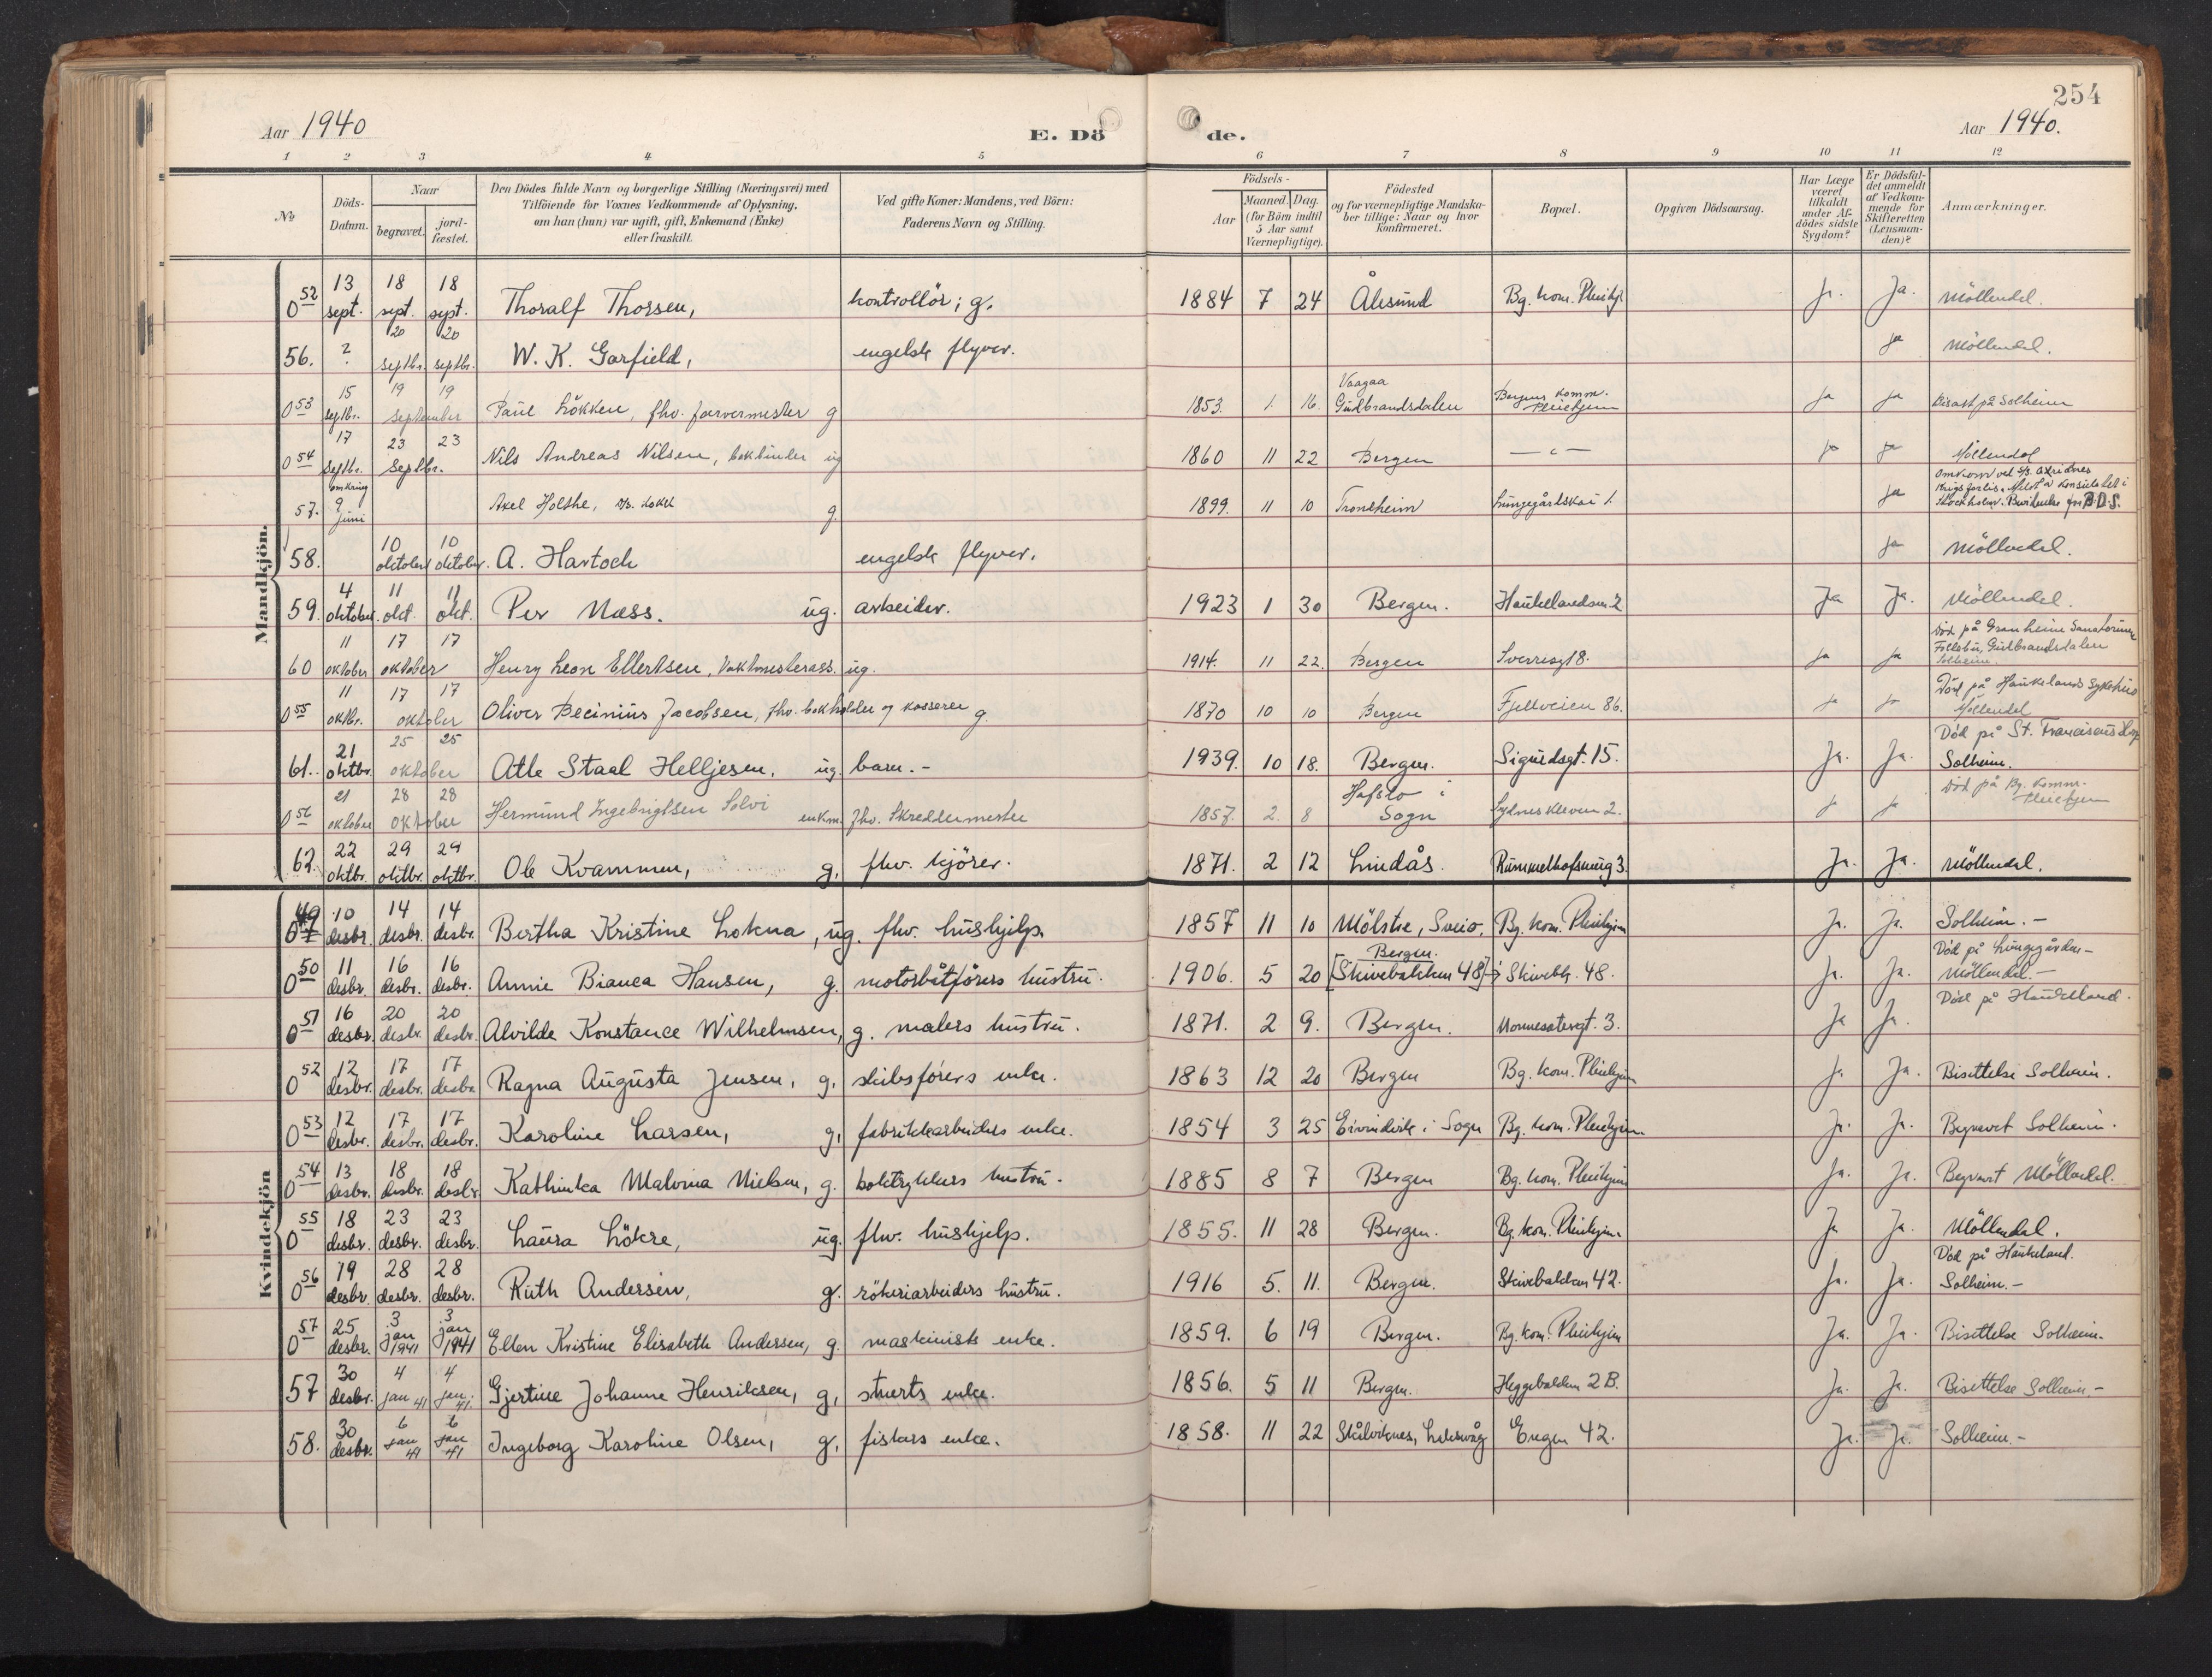 254
Aar 1940
E. Dö de.
Aar 1940.
1 2 3 4 5 6 7 8 9 10 11 12
№
Döds-Datum.
Naar
begravet.
jord-fæstet.
Den Dödes fulde Navn og borgerlige Stilling (Næringsvei) med
Tilföiende for Voxnes Vedkommende af Oplysning,
om han (hun) var ugift, gift, Enkemand (Enke)
eller fraskilt.
Ved gifte Koner: Mandens, ved Börn:
Faderens Navn og Stilling.
Födsels-
Aar
Maaned. Dag.
(for Börn indtil
5 Aar samt
Værnepligtige).
Födested
og for værnepligtige Mandska-
ber tillige: Naar og hvor
Konfirmeret.
Bopæl.
Opgiven Dödsaarsag.
Har Læge
været
tilkaldt
under Af-
dödes sidste
Sygdom?
Er Dödsfal-
det anmeldt
af Vedkom-
mende for
Skifteretten
(Lensman-
den)?
Anmærkninger.
Mandkjön.
052 13 sept. 18 sept. 18 sept. Thoralf Thorsen, kontrollör; g. 1884 7 24 Ålesund Bg. kom. Pleiehj. Ja. Ja. Möllendal.
56. ? 20 septbr. 20 septbr. W. K. Garfield, engelsk flyver. Ja Möllendal.
053 15 septbr. 19 19 september Paul Lökken, fhv. farvermester g 1853. 1. 16. Vaagaa Gudbrandsdalen Bergens komm. Pleiehjem Ja Ja Bisatt på Solheim
054 17 septbr. 23 23 septbr. Nils Andreas Nilsen, bokbinder ug 1860 11 22 Bergen — " — Ja Ja Möllendal
57. omkring 9 juni Axel Holthe, g. 1899. 11 10 Trondheim Lungegårdskai 1. Ja Omkom ved
krigsforlis. Stockholm. B.D.S.
58. 10 oktober 10 oktober. A. Hartoch engelsk flyver. Ja Möllendal.
59. 4 oktober. 11 okt. 11 okt. Per Næss. ug. arbeider. 1923 1 30 Bergen. Haukelandsv. 2 Ja Ja. Möllendal.
60 11 oktober 17 17 oktober Henry Leon Ellertsen, vaktmesterass. ug. 1914. 11 22. Bergen Sverresgt 8. Ja Ja Död på Granheim Sanatorium
Follebu, Gudbrandsdalen
Solheim.
055 11 oktbr. 17 17 oktober Oliver Jacobsen, fhv. bokholder og kasserer g. 1870 10 10 Bergen Fjellveien 86. Ja Ja Död på Haukelands Sykehus
Möllendal
61. 21 oktbr. 25 25 oktober Atle Staal Helljesen, ug. barn.- 1939. 10 18. Bergen. Sigurdsgt. 15. Ja. Ja. Död på St. Franciscus Hosp
Solheim.
056 21 oktober 28 28 oktober Hermund Ingebrigtsen Solvi enkm. fhv. Skreddermester 1857. 2. 8 Hafslo i Sogn Sydneskleven 2. Ja Ja Död på Bg. Komm.
Pleiehjem
62. 22 oktbr. 29 oktbr. 29 oktbr. Ole Kvammen, g. fhv. kjörer. 1871. 2 12 Lindås. Rummelhofsmug 3. Ja. Ja. Möllendal.
Kvindekjön
049 10 desbr. 14 desbr. 14 desbr. Bertha Kristine Lokna, ug. fhv. hushjelp. 1857 11 10 Mölstre, Sveio. Bg. kom. Pleiehjem Ja. Ja. Solheim.-
050 11 desbr. 16 desbr. 16 desbr. Annie Bianca Hansen, g. motorbåtförers hustru. 1906. 5 20 Bergen. [Skivebakken 48] Skivebk. 48. Ja. Ja. Död på Lungegården-
Möllendal.-
051 16 desbr. 20 desbr. 20 desbr. Alvilde Konstance Wilhelmsen, g. malers hustru. 1871. 2 9. Bergen. Nonnesetergt. 3. Ja Ja. Död på Haukeland.
052 12 desbr. 17 desbr. 17 desbr. Ragna Augusta Jensen, g. skibsförers enke. 1863 12 20 Bergen Bg. kom. Pleiehjem Ja. Ja. Bisettelse Solheim.
053 12 desbr. 17 desbr. 17 desbr. Karoline Larsen, g. fabrikkarbeiders enke. 1854 3 25 Eivindvik i Sogn Bg. kom. Pleiehjem Ja. Ja. Begravet Solheim.
054 13 desbr. 18 desbr. 18 desbr. Kathinka Malvina Nielsen, g. boktrykkers hustru. 1885 8 7 Bergen Bg. kom. Pleiehjem Ja. Ja. Begravet Möllendal.
055 18 desbr. 23 desbr. 23 desbr. Laura Lökre, ug. fhv. hushjelp. 1855. 11 28 Bergen. Bg. kom. Pleiehjem. Ja Ja. Möllendal.
056 19 desbr. 28 desbr. 28 desbr. Ruth Andersen, g. rökeriarbeiders hustru. 1916 5. 11. Bergen. Skivebakken 42. Ja. Ja. Död på Haukeland.
Solheim.-
057 25 desbr. 3 jan 1941 3 jan 1941 Ellen Kristine Elisabeth Andersen, g. maskinists enke. 1859. 6 19 Bergen. Bg. kom. Pleiehjem Ja. Ja. Bisettelse Solheim.
57 30 desbr. 4 jan 41 4 jan. 41. Gjertine Johanne Henriksen, g, stuerts enke. 1856. 5 11 Bergen. Heggebakken 2B. Ja. Ja. Bisettelse Solheim.-
58. 30 desbr. 6 jan 41 6 jan 41 Ingeborg Karoline Olsen, g, fiskers enke. 1858. 11 22 Skålviknes, Laksevåg Engen 42. Ja. Ja. Solheim.-